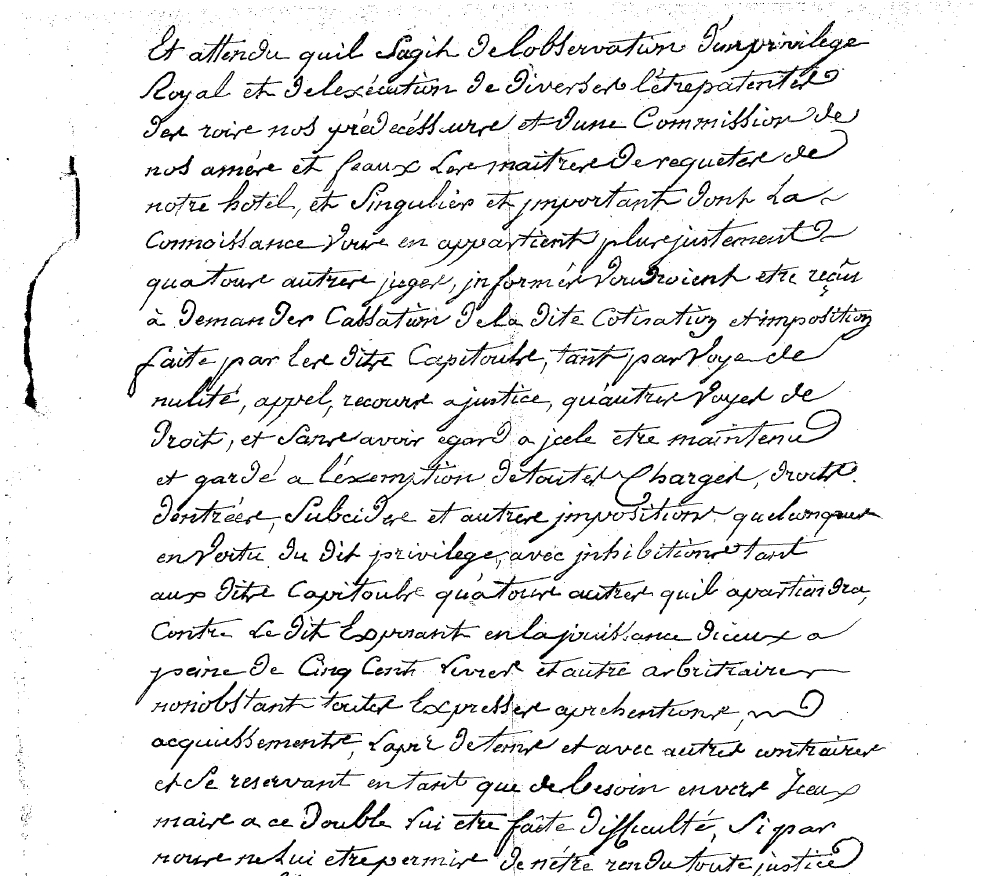 Et attendu quil Sagit de lobservation dun privilege
Royal et de lexécution de diverses létrepatentes
des rois nos prédecéssurs et dune Commission de
nos amés et feaux Les maitres de requetes de
notre hotel, et Singulier et jmportant dont La
Connoissance Vous en appartient plus justement
qua tous autres juges, jnformés Voudroient etre reçûs
à demander Cassation de la dite Cotisation et imposition
faite par les dits Capitouls, tant par Voye de
nulité, appel, recours a justice, quáutres Voyes de
droit, et Sans avoir egard a jcele etre maintenu
et gardé a léxemption de toutes Charges, droits
dentrées, Subcides et autres jmpositions quelconques
en Vertu du dit privilege, avec jnhibitions tant
aux dits Capitouls quá tous autres quil apartiendra,
Contre Le dit Exposant en la jouissance diceux a
peine de Cinq Cents Livres et autre arbitraire
nonobstant toutes Expresses aprehentions,
acquiessements, Laps de tems et avec autres contraires
et Se reservant en tant que de besoin envers Jceux
mais a ce double Lui etre faite difficulté, Si par
nous ne Lui etre permis de nétre rendu toute justice